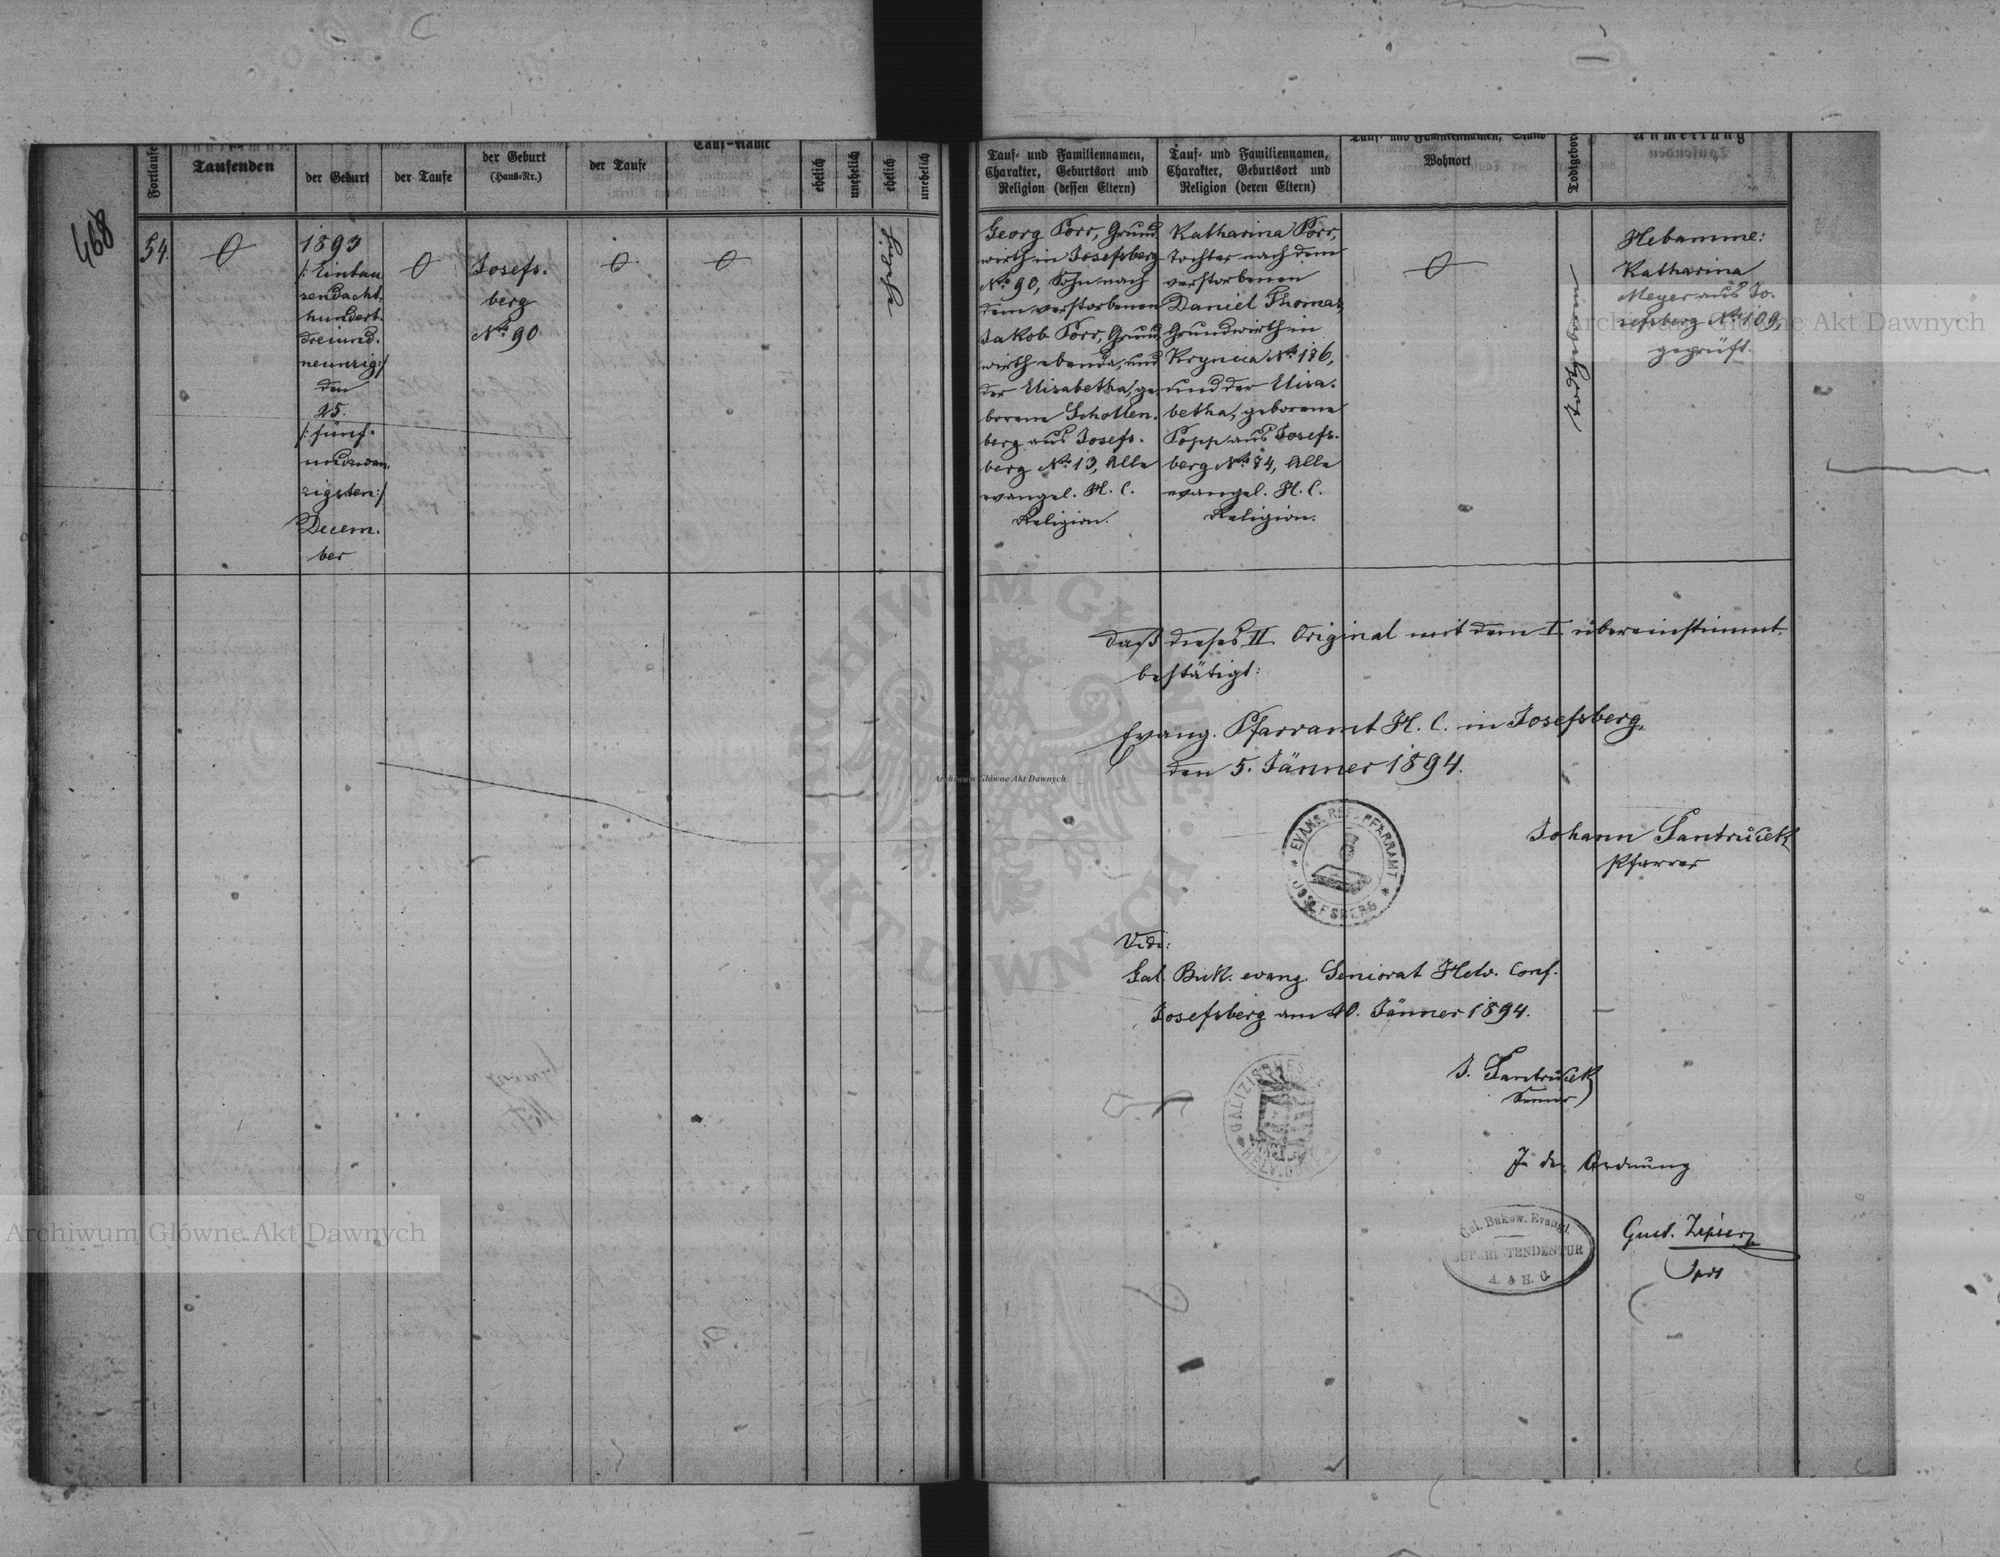 468
Fortlaufe
Taufenden
der Geburt
der Taufe
der Geburt
(Haus-Nr.)
der Taufe
Tauf-Name
ehelich
unehelich
ehelich
unehelich
54.
1893
/: Eintau
sendacht-
hundert-
dreiund-
neunzig :/
den
25.
/: fünf-
undzwan-
zigsten :/
Decem-
ber
Josefs-
berg
No. 90
ehelich
Tauf- und Familiennamen,
Charakter, Geburtsort und
Religion (dessen Eltern)
Tauf- und Familiennamen,
Charakter, Geburtsort und
Religion (deren Eltern)
Tauf- und Familiennamen, Stand
Wohnort
Todtgebor
Anmerkung
Georg Porr, Grund
wirth in Josefsberg
No. 90, Sohn nach
dem verstorbenen
Jakob Porr, Grund
wirth ebenda, und
der Elisabetha, ge-
borene Schollen-
berg aus Josefs-
berg No. 13, Alle
evangel. H. C.
Religion.
Katharina Porr,
Tochter nach dem
verstorbenen
Daniel Thomas,
Grundwirth in
Krynica No. 186,
und der Elisa-
betha, geborene
Popp aus Josefs-
berg No. 84, Alle
evangel. H. C.
Religion.
todtgeboren
Hebamme:
Katharina
Meyer aus Jo-
sefsberg No. 109,
geprüft.
Daß dieses II. Original mit dem I. übereinstimmt,
bestätigt:
Evang. Pfarramt H. C. in Josefsberg,
den 5. Jänner 1894.
EVANG. REF. PFARRAMT
JOSEFSBERG
Johann Pantrůček
Pfarrer
Vidi:
Gal. Buk. evang. Seniorat Helv. Conf.
Josefsberg am 10. Jänner 1894.
J. Pantrůček
Senior
GALIZISCHES
HELV. CON
In der Ordnung
Gal. Bukow. Evangl.
SUPERINTENDENTUR
A. & H. C.
Gust. Zipser
Spdt
Archiwum Główne Akt Dawnych
Archiwum Główne Akt Dawnych
Archiwum Główne Akt Dawnych
ARCHIWUM GŁÓWNE AKT DAWNYCH